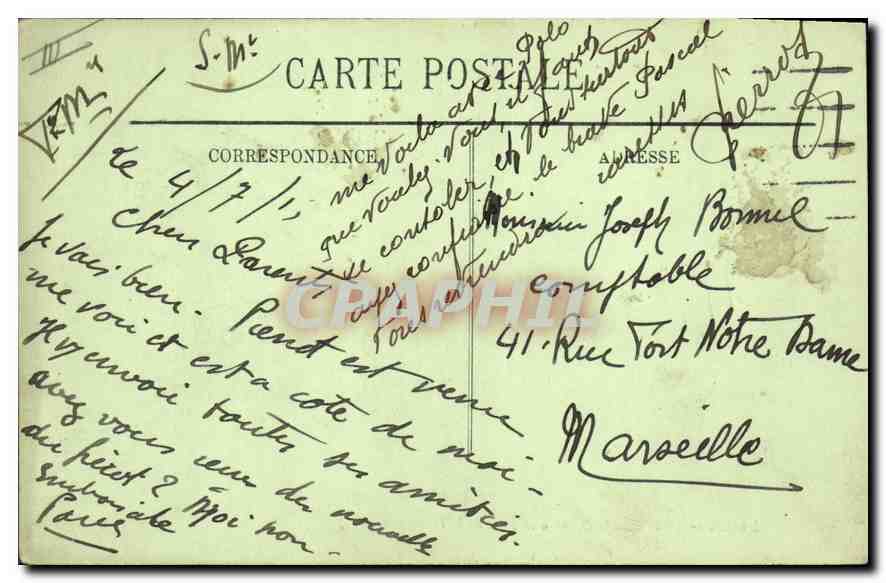 III
S-Mé
CARTE POSTALE
CORRESPONDANCE
ADRESSE
Le 4/7/1
Chers Parents
Je vais bien. Pierrot est venu
me voir et est a coté de moi -
Il y envoi toutes ses amitiés.
avez vous reçu des nouvelle
du ? Moi non -
Embrassade
me voila avec Polo
que voulez-vous, il faut
se consoler, et vous surtout
ayez confiance. le brave Pascal
vous
caresses
Pierrot
Monsieur Joseph Bonnel
comptable
41. Rue Fort Notre Dame
Marseille
CPRAPHIL